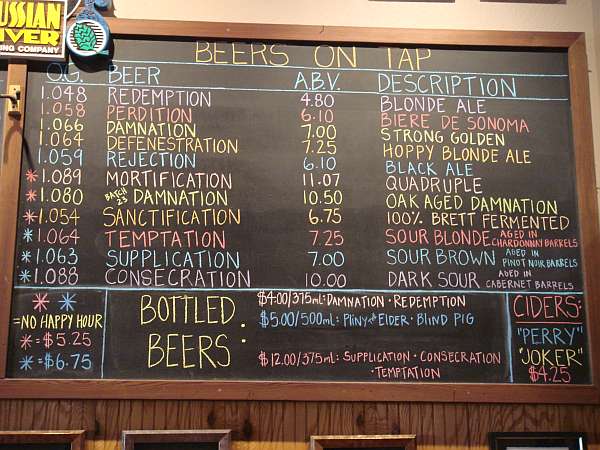 USSIAN
IVER
ING COMPANY
BEERS ON TAP
O.G. BEER A.B.V. DESCRIPTION
1.048 REDEMPTION 4.80 BLONDE ALE
1.058 PERDITION 6.10 BIERE DE SONOMA
1.066 DAMNATION 7.00 STRONG GOLDEN
1.064 DEFENESTRATION 7.25 HOPPY BLONDE ALE
1.059 REJECTION 6.10 BLACK ALE
*1.089 MORTIFICATION 11.07 QUADRUPLE
*1.080 BATCH 23 DAMNATION 10.50 OAK AGED DAMNATION
*1.054 SANCTIFICATION 6.75 100% BRETT FERMENTED
*1.064 TEMPTATION 7.25 SOUR BLONDE AGED IN CHARDONNAY BARRELS
*1.063 SUPPLICATION 7.00 SOUR BROWN AGED IN PINOT NOIR BARRELS
*1.088 CONSECRATION 10.00 DARK SOUR AGED IN CABERNET BARRELS
* *
=NO HAPPY HOUR
*=$5.25
*=$6.75
BOTTLED BEERS:
$4.00/375mL: DAMNATION · REDEMPTION
$5.00/500mL: PLINY THE ELDER · BLIND PIG
$12.00/375mL: SUPPLICATION · CONSECRATION
· TEMPTATION
CIDERS:
"PERRY"
"JOKER"
$4.25